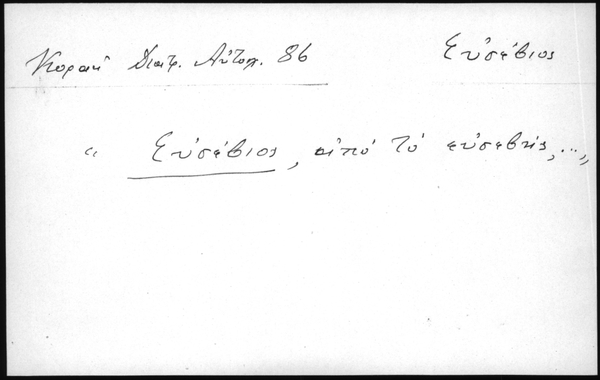 Κοραή Διατρ. Αὐτοσχ. 86 Εὐσέβιος
“ Εὐσέβιος, ἀπό τό εὐσεβής, ...„